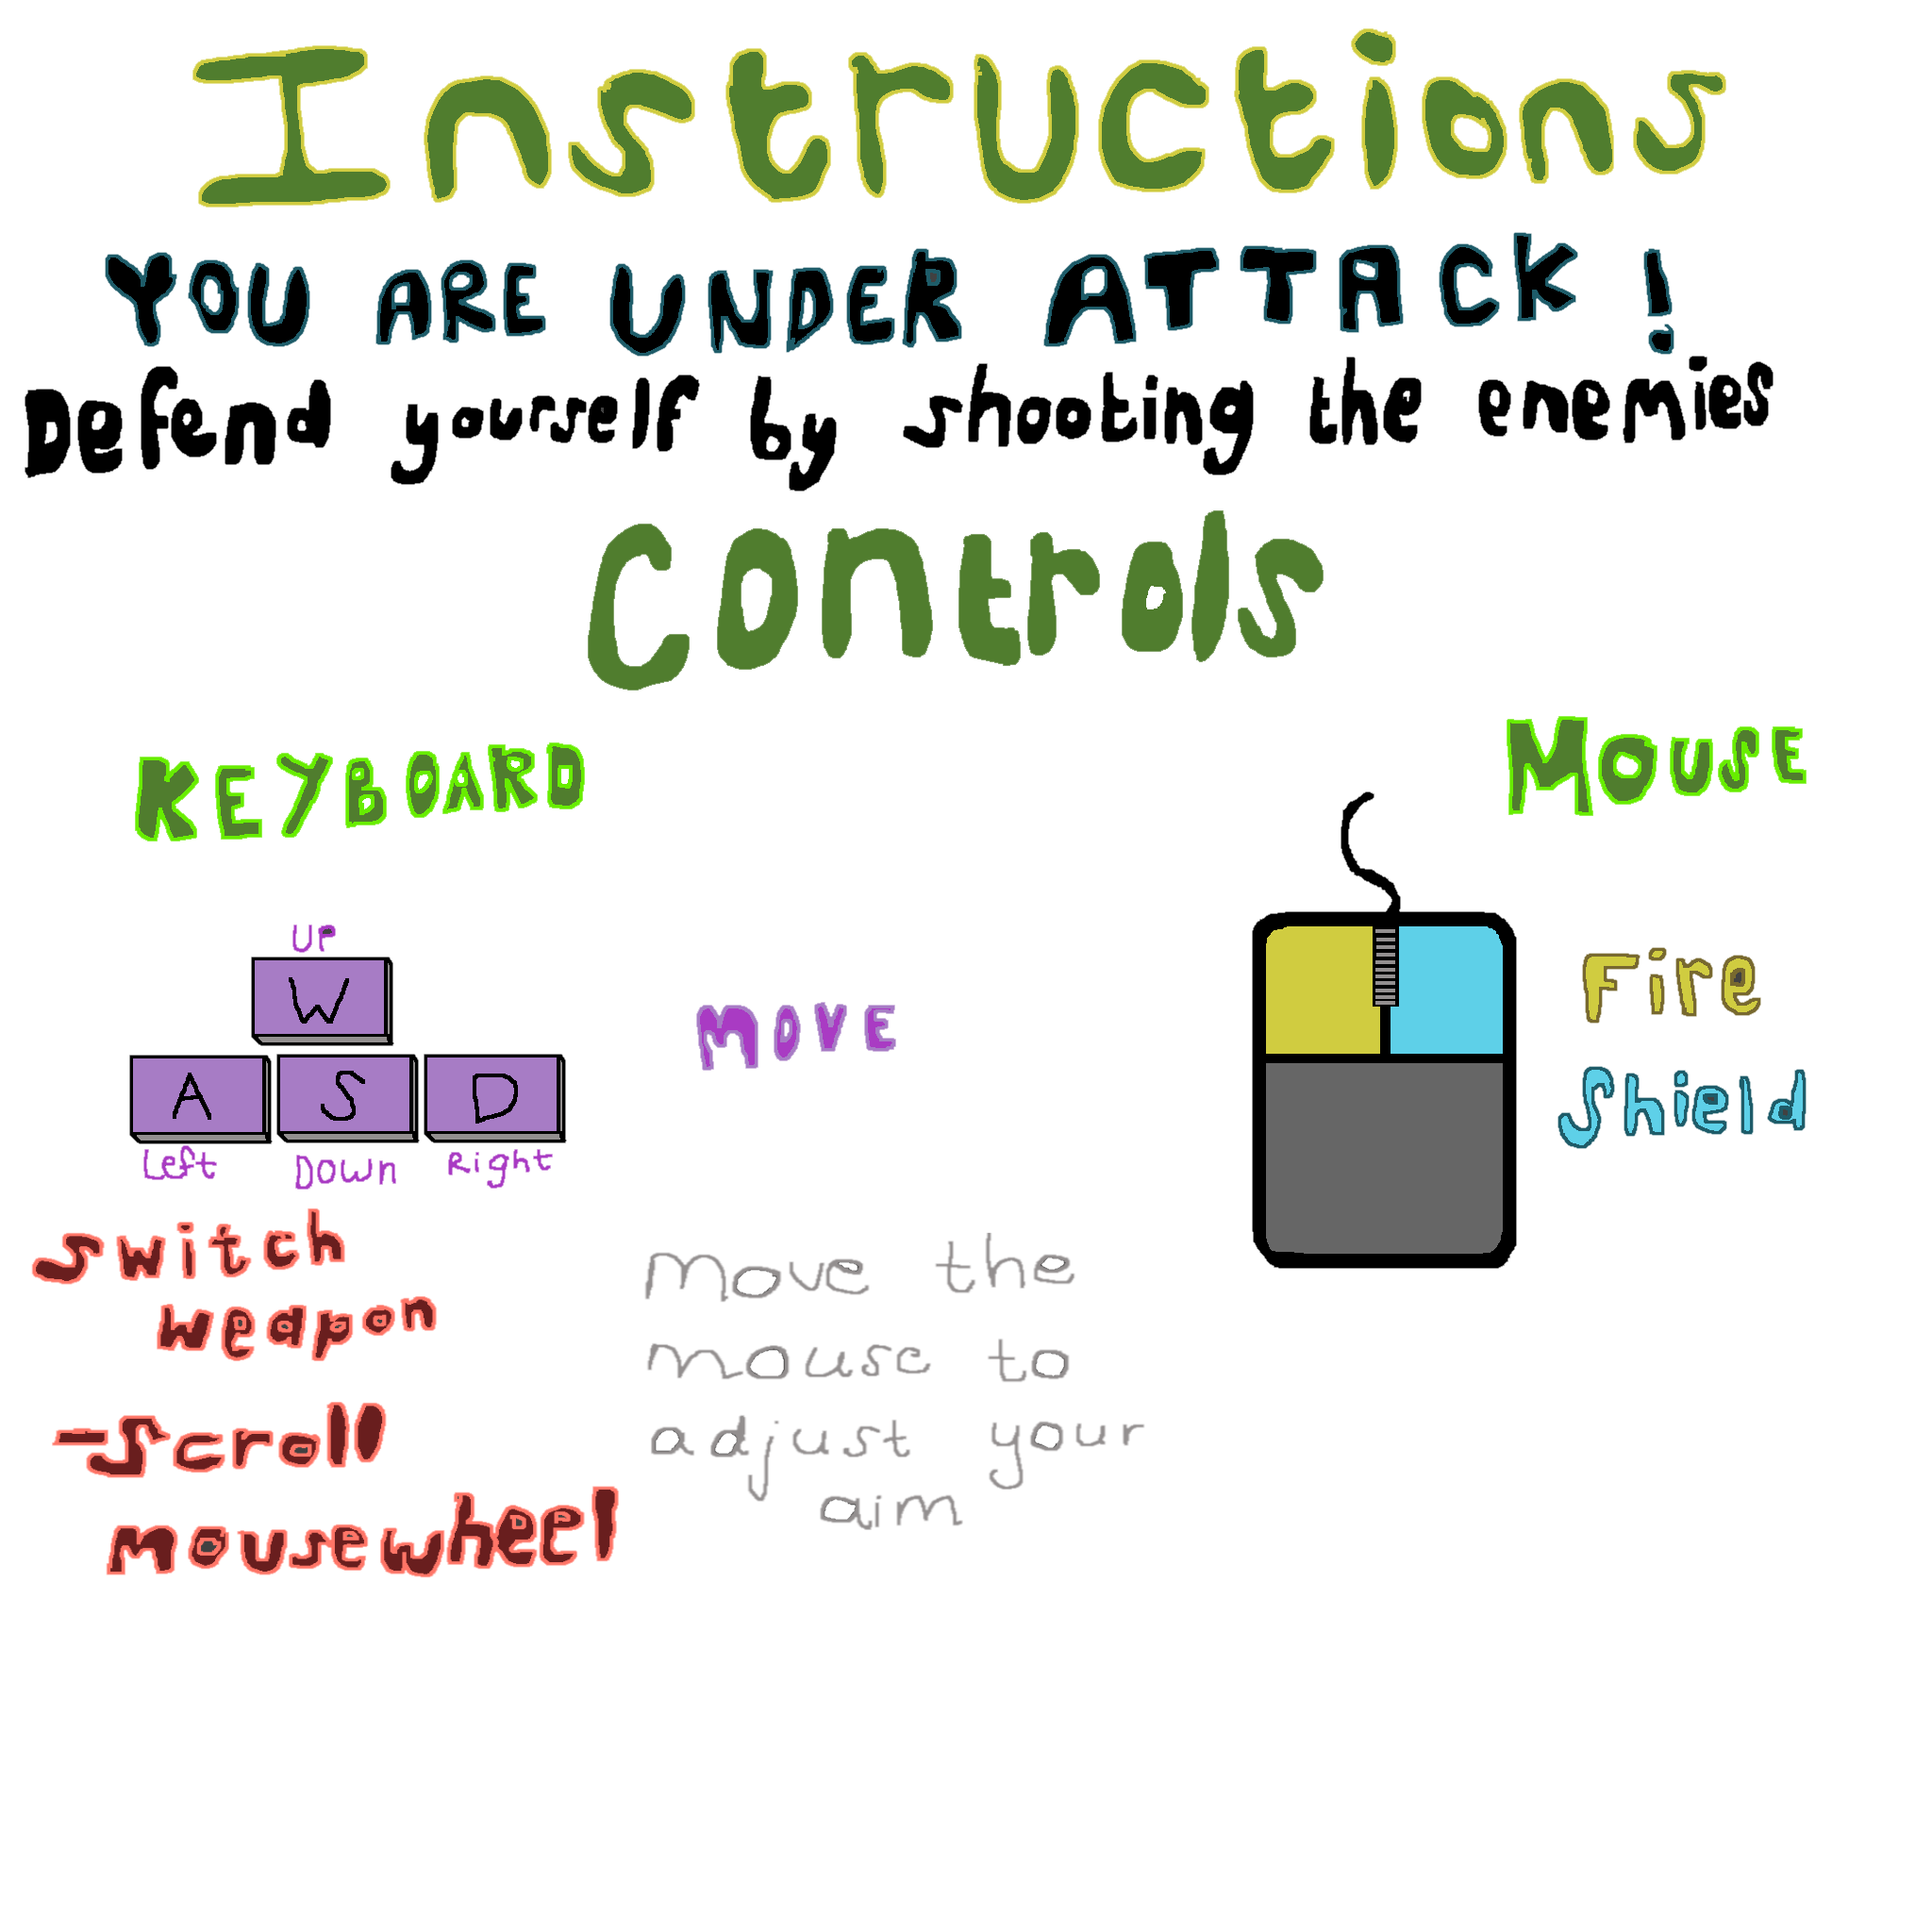 Instructions
YOU ARE UNDER ATTACK !
Defend yourself by shooting the enemies
Controls
KEYBOARD
MOUSE
UP
W
A
S
D
Left
Down
Right
MOVE
Fire
Shield
Switch
weapon
-Scroll
mousewheel
move the
mouse to
adjust your
aim